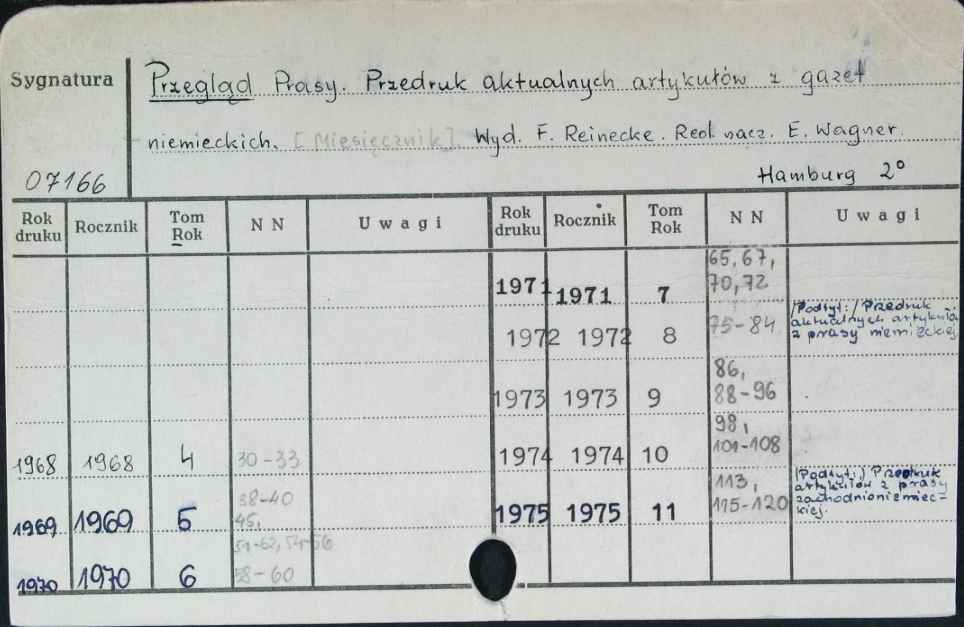 Sygnatura
Przegląd Prasy. Przedruk aktualnych artykułów z gazet
niemieckich. [Miesięcznik]. Wyd. F. Reinecke. Red. nacz. E. Wagner.
07166
Hamburg 2°
Rok druku Rocznik Tom Rok NN Uwagi Rok druku Rocznik Tom Rok NN Uwagi
1971 1971 7 65, 67,
70, 72
1972 1972 8 75-84 /Podtyt:/ Przedruk
aktualnych artykułów
z prasy niemieckiej
1973 1973 9 86,
88-96
1968 1968 4 30-33
1974 1974 10 98,
101-108
1969 1969 5 38-40
45,
1975 1975 11 113,
115-120
(Podtyt:) Przedruk
artykułów z prasy
zachodnioniemiec-
kiej.
1970 1970 6 54-56
58-60